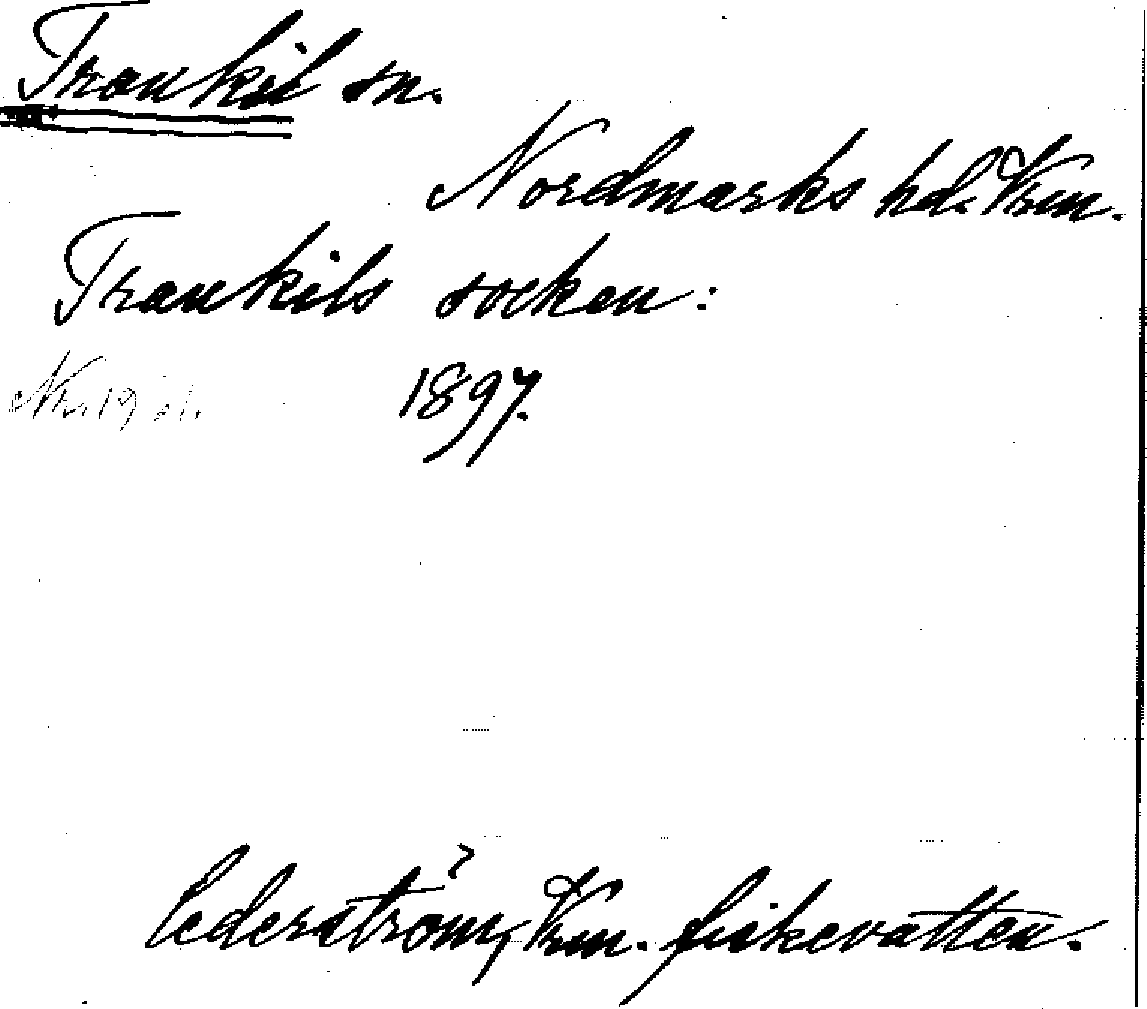 Trankil sn.
Nordmarks hd. Vrm.
Trankils socken:
1897.
Cederström, Vrm. fiskevatten.